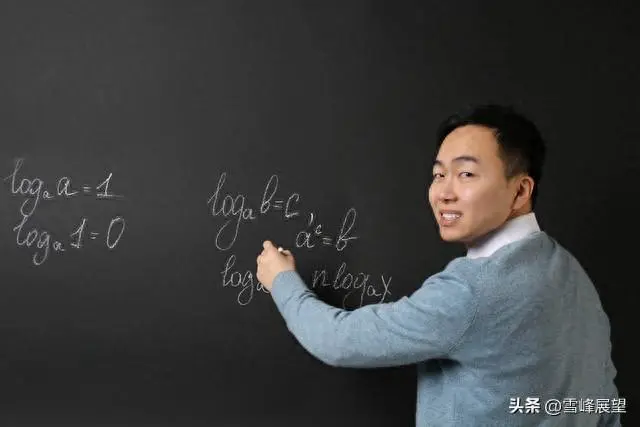 logₐ a = 1
logₐ 1 = 0
logₐ b = c
aᶜ = b
logₐ n logₐ x
头条 @雪峰展望